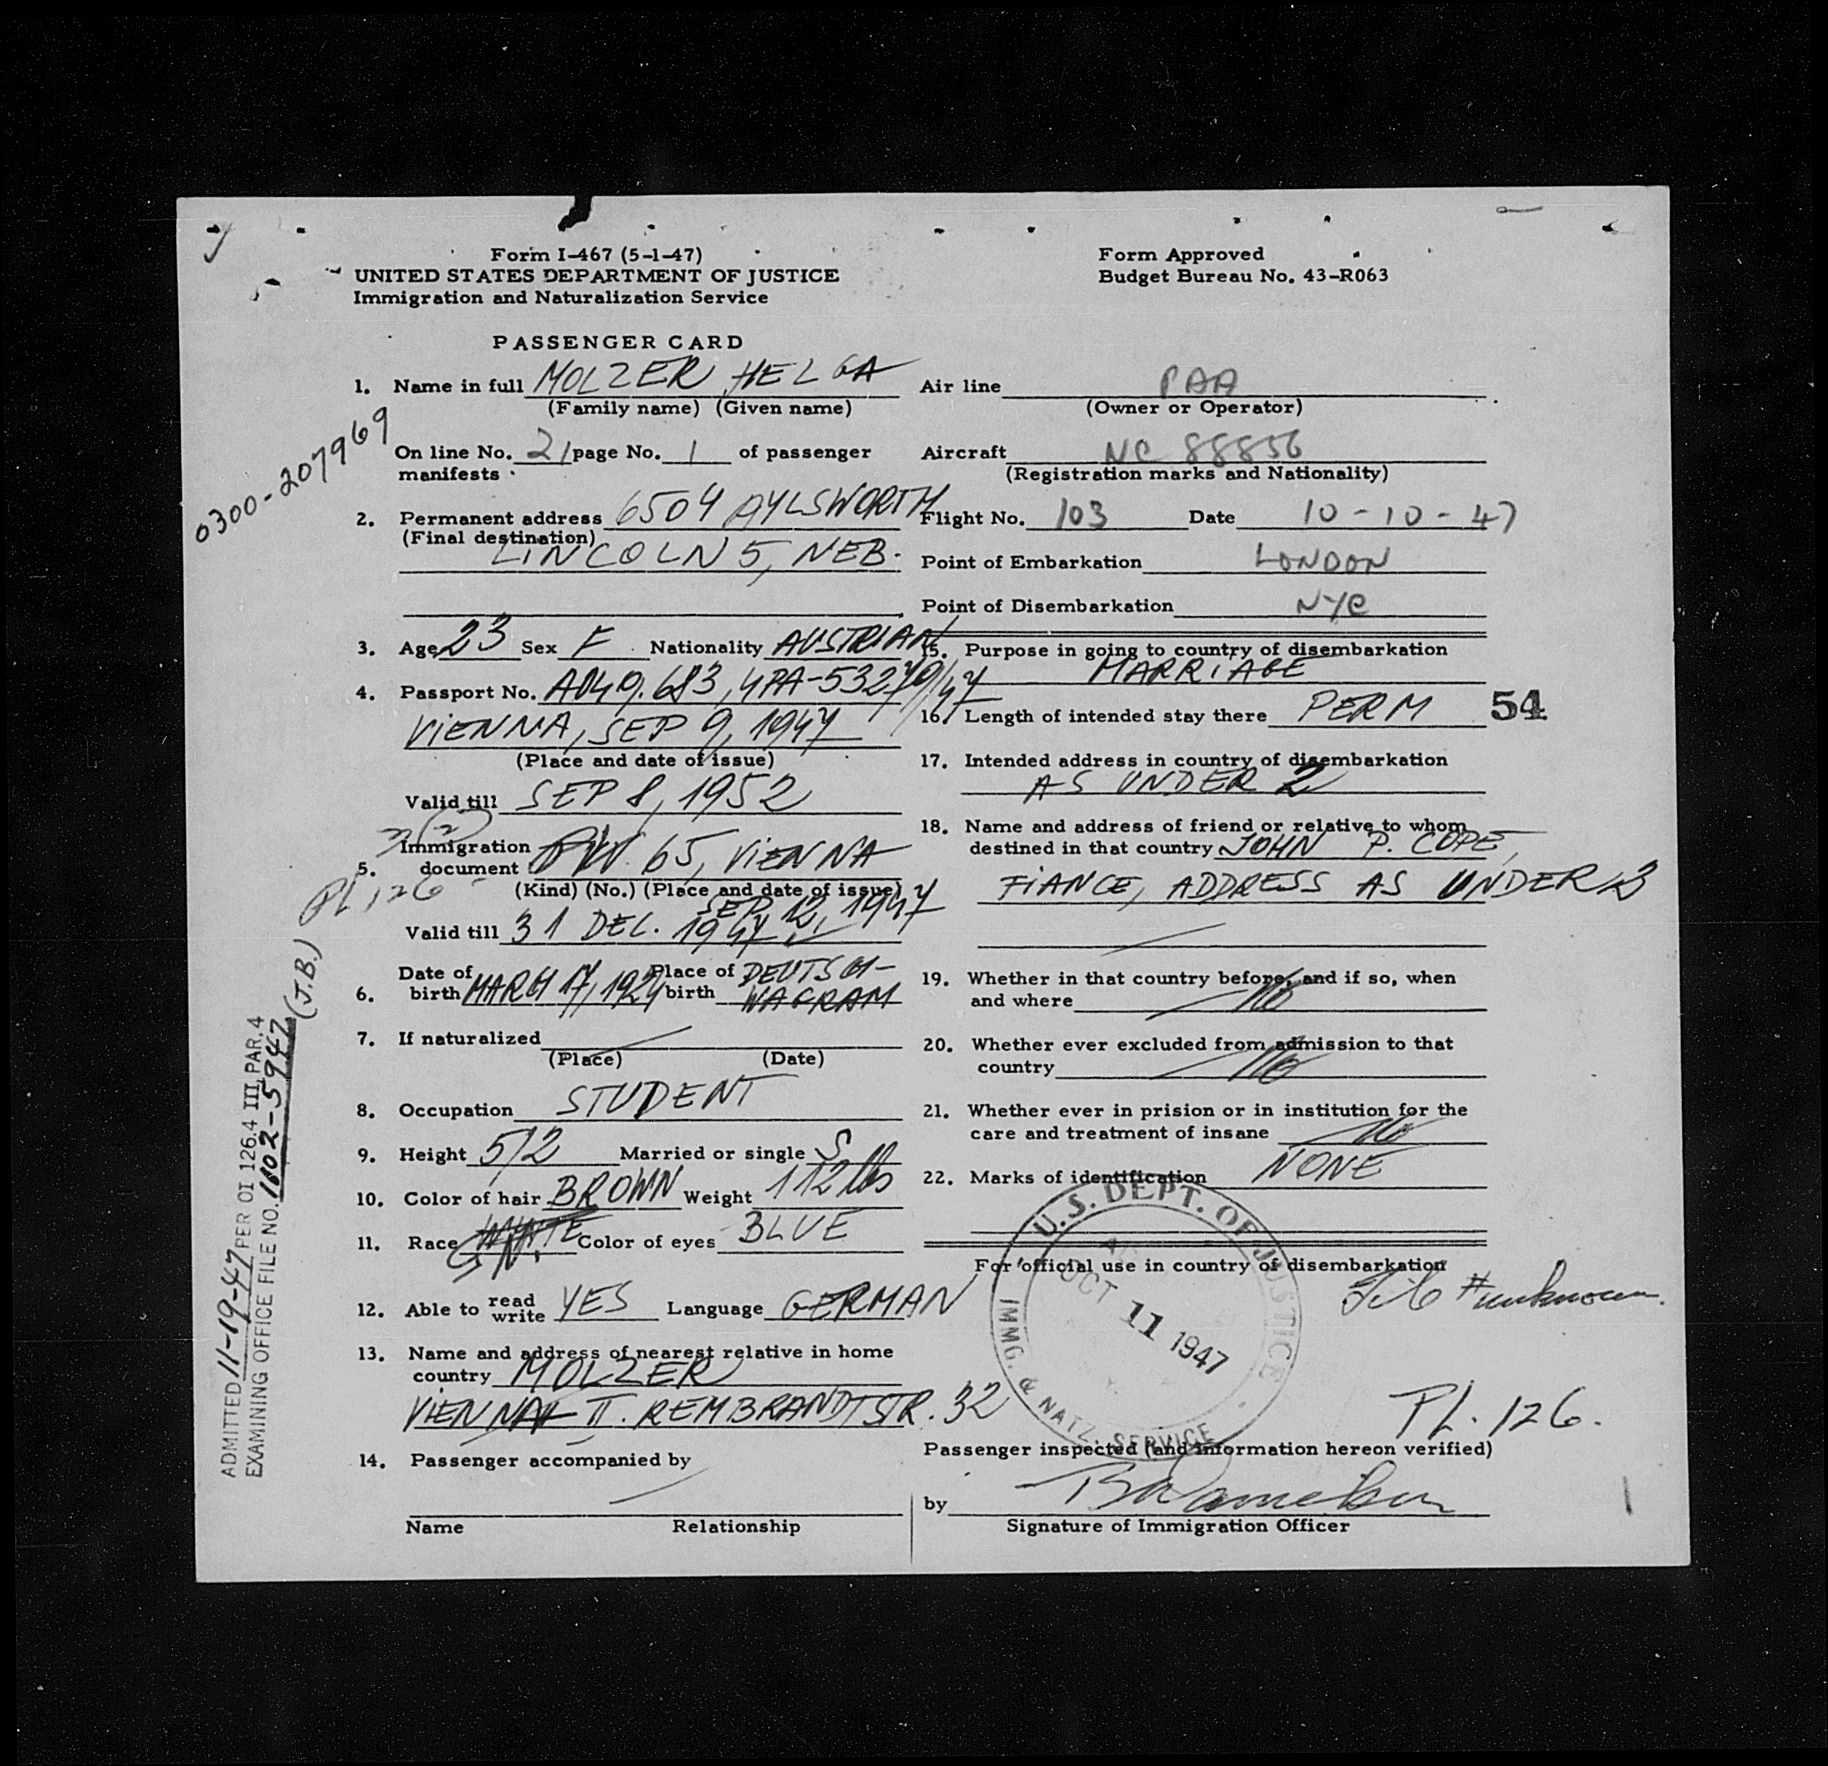 Form I-467 (5-1-47)
UNITED STATES DEPARTMENT OF JUSTICE
Immigration and Naturalization Service
Form Approved
Budget Bureau No. 43-R063
PASSENGER CARD
1. Name in full MOLZER HELGA
(Family name) (Given name)
On line No. 21 page No. 1 of passenger
manifests
0300-207969
2. Permanent address 6504 AYLSWORTH
(Final destination)
LINCOLN 5, NEB.
3. Age 23 Sex F Nationality AUSTRIAN
4. Passport No.
VIENNA, SEP 9, 1947
(Place and date of issue)
Valid till SEP 8, 1952
5. Immigration
document 65, VIENNA
(Kind) (No.) (Place and date of issue)
SEP 12, 1947
PL 126
Valid till 31 DEC. 1947
6. Date of birth MARCH 17, 1924 Place of birth DEUTSCH-
WAGRAM
7. If naturalized
(Place) (Date)
8. Occupation STUDENT
9. Height 5/2 Married or single S
10. Color of hair BROWN Weight 112 lbs
11. Race WHITE Color of eyes BLUE
12. Able to read write YES Language GERMAN
13. Name and address of nearest relative in home
country MOLZER
VIENNA II. REMBRANDTSTR. 32
14. Passenger accompanied by
Name Relationship
Air line PAA
(Owner or Operator)
Aircraft NC 88856
(Registration marks and Nationality)
Flight No. 103 Date 10-10-47
Point of Embarkation LONDON
Point of Disembarkation NYC
15. Purpose in going to country of disembarkation
MARRIAGE
16. Length of intended stay there PERM
54
17. Intended address in country of disembarkation
AS UNDER 2
18. Name and address of friend or relative to whom
destined in that country JOHN P. COPE,
FIANCE, ADDRESS AS UNDER 2
19. Whether in that country before, and if so, when
and where No
20. Whether ever excluded from admission to that
country No
21. Whether ever in prision or in institution for the
care and treatment of insane No
22. Marks of identification NONE
For official use in country of disembarkation
File # unknown.
U.S. DEPT. OF JUSTICE
OCT 11 1947
IMMG. & NATZ. SERVICE
PL. 126.
Passenger inspected (and information hereon verified)
by
Signature of Immigration Officer
ADMITTED 11-19-47 PER OI 126.4 III, PAR. 4
EXAMINING OFFICE FILE NO. 1602-5947 (J.B.)